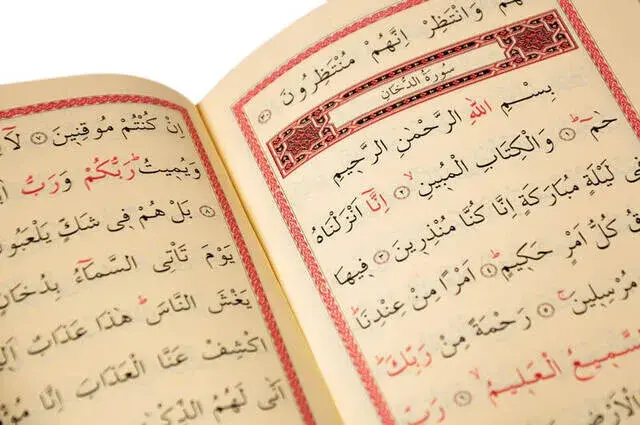 وَانْتَظِرْ اِنَّهُمْ مُنْتَظِرُونَ ٣٠
سُورَةُ الدُّخَانِ
بِسْمِ اللهِ الرَّحْمٰنِ الرَّحِيمِ
حٰمٓ ١ وَالْكِتَابِ الْمُبِينِ ٢ اِنَّٓا اَنْزَلْنَاهُ
لَيْلَةٍ مُبَارَكَةٍ اِنَّا كُنَّا مُنْذِرِينَ ٣ فِيهَا
كُلُّ اَمْرٍ حَكِيمٍ ٤ اَمْرًا مِنْ عِنْدِنَا
مُرْسِلِينَ ٥ رَحْمَةً مِنْ رَبِّكَ
السَّمِيعُ الْعَلِيمُ ٦ رَبِّ
الْاَرْضِ
اِنْ كُنْتُمْ مُوقِنِينَ ٧ لَٓا
وَيُمِيتُ رَبُّكُمْ وَرَبُّ
٨ بَلْ هُمْ فِي شَكٍّ يَلْعَبُو
يَوْمَ تَأْتِي السَّمَٓاءُ بِدُخَانٍ
يَغْشَى النَّاسَ هٰذَا عَذَابٌ
اِكْشِفْ عَنَّا الْعَذَابَ اِنَّا
اَنّٰى لَهُمُ